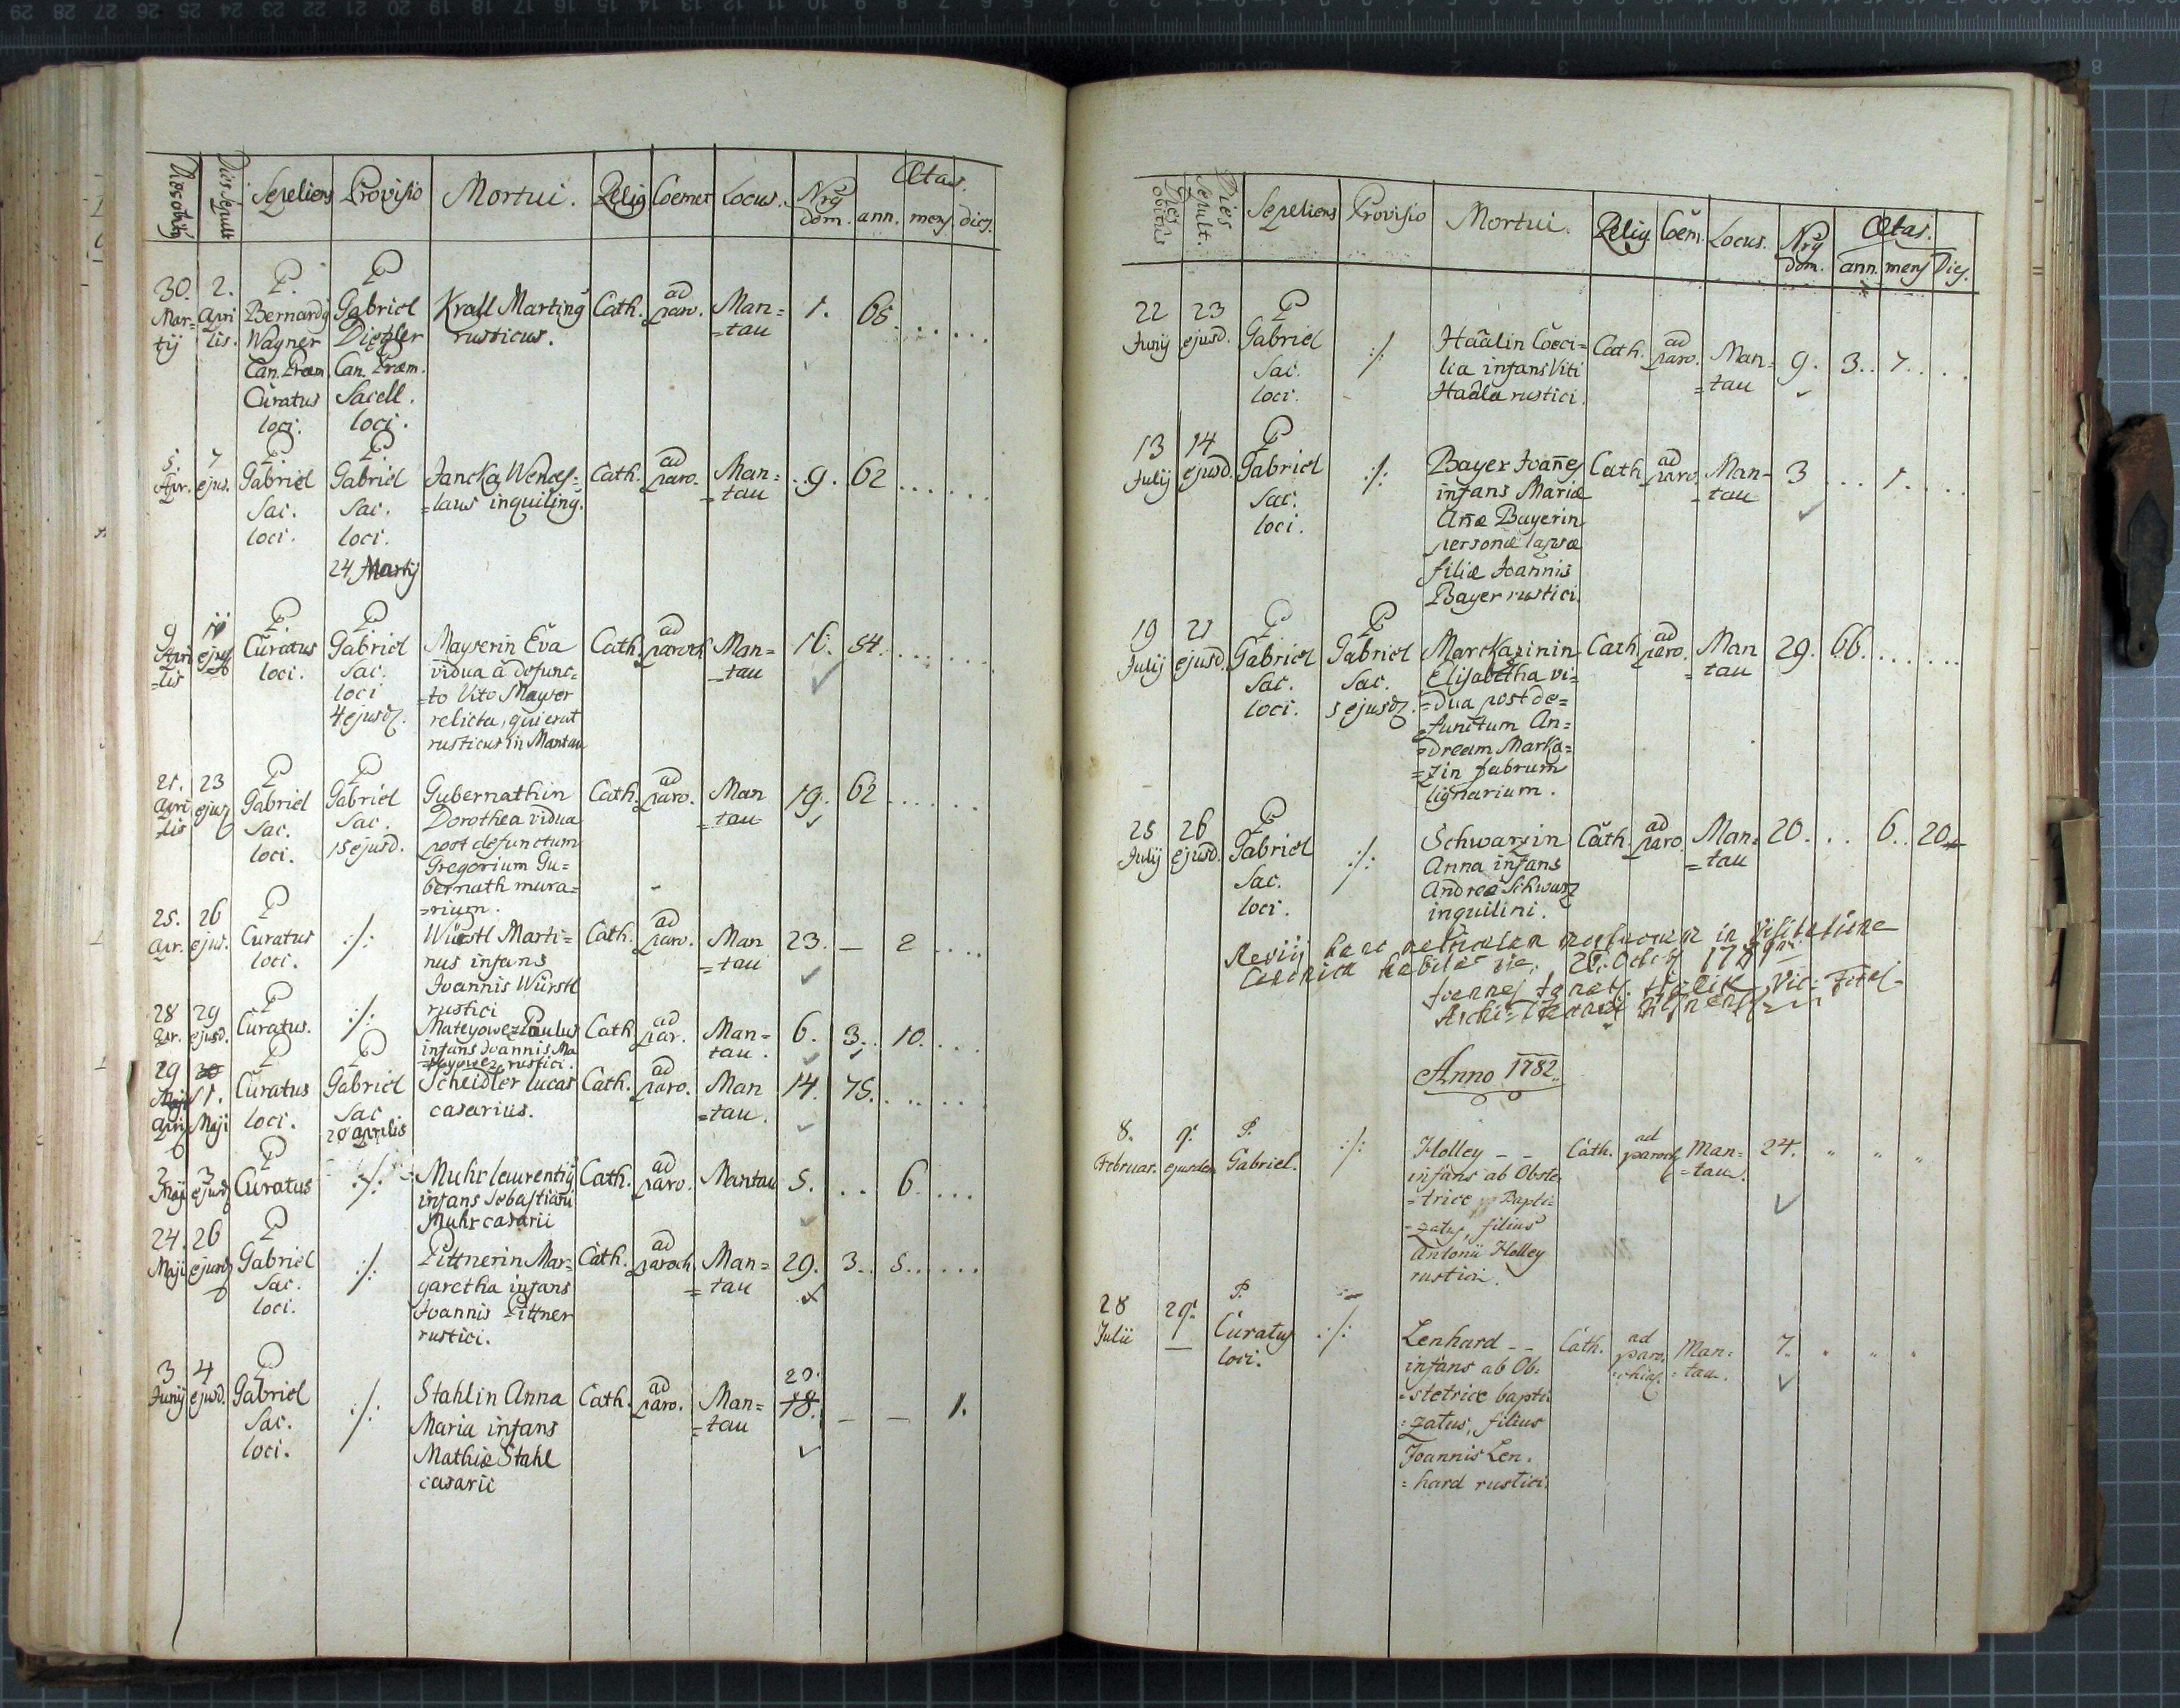 Dies obitus
Dies Sepult
Sepeliens Provisio Mortui. Relig Coemet Locus. Nrq dom. Ætas. ann. mens. dies.
30. Martij 2. Aprilis. P. Bernardq Wagner Can. Præm. Curatus loci. P Gabriel Can. Præm. Sacell. loci. Krall Martinq rusticus. Cath. ad paro. Man=
=tau 1. 65. .. ...
5. Apr. 7 ejus. P. Gabriel Sac. loci. P. Gabriel Sac. loci. 24 Martij Jancka Wences=
=laus inquilinq. Cath. ad paro. Man=
=tau 9. 62 ... ...
9 Apri
=lis P. Curatus loci. P. Gabriel Sac. loci 4 ejusd. Mayerin Eva
vidua à defunc=
=to Vito Mayer
relicta, qui erat
rusticus in Mantau Cath. ad paroch Man=
=tau 16. 54. ... ...
21. Apri
lis 23 ejus P Gabriel Sac. loci. P Gabriel Sac. 15 ejusd. Gubernathin
Dorothea vidua
post defunctum
Gregorium Gu=
bernath mura=
=rium. Cath. ad paro. Man
=tau 19. 62 ... ...
25. Apr. 26 ejus. P Curatus loci. ./. Würstl Marti=
nus infans
Joannis Würstl
rustici Cath. ad paro. Man
=tau 23. — 2 ....
28 Apr. 29 ejusd. P Curatus. ./. Mateyowez Paulus
infans Joannis Ma
=teyowez rustici. Cath ad par. Man=
tau. 6. 3.. 10. ...
29 Apri 1. Maji P Curatus loci. P Gabriel Sac 20 aprilis Scheidler Lucas
casarius. Cath. ad paro. Man
=tau. 14. 75. .. ...
2 Maji 3 ejusd P Curatus ./. Muhr laurentiq
infans Sebastiani
Muhr casarii Cath. ad paro. Mantau 5. .. 6. ...
24. Maji 26 ejusd P Gabriel Sac. loci. ./. Pittnerin Mar=
garetha infans
Joannis Pittner
rustici. Cath. ad paroch Man=
=tau 29. 3.. 5.. ...
3 Junij 4 ejusd. P Gabriel Sac. loci. ./. Stahlin Anna
Maria infans
Mathiæ Stahl
casarii Cath. ad paro. Man=
=tau 18. — — 1.
Dies obitus
Dies Sepult.
Sepeliens Provisio Mortui. Relig Cöem. Locus. Nrq dom. Ætas. ann. mens Dies.
22 Junij 23 ejusd. P Gabriel Sac. loci. ./. Haälin Cöeci=
lia infans Viti
Haäla rustici. Cath. ad paro. Man=
=tau 9. 3.. 7.. ..
13 Julij 14 ejusd P Gabriel Sac. loci. ./. Bayer Joañes
infans Mariæ
Añæ Bayerin
personæ lapsæ
filiæ Joannis
Bayer rustici. Cath ad paro. Man=
=tau 3 ... 1. ...
19 Julij 21 ejusd. P Gabriel Sac. loci. P Gabriel Sac. 5 ejusd. Marckazinin
Elisabetha vi=
=dua post de=
functum An=
=dream Marka=
=zin fabrum
lignarium. Cath ad paro. Man
=tau 29. 66. ... ...
25 Julij 26 ejusd. P Gabriel Sac. loci. ./. Schwarzin
Anna infans
Andreæ Schwarz
inquilini. Cath. ad paro. Man=
=tau 20. .. 6.. 20
in Visitatione
Anno 1782.
8. Februar. 9. P. Gabriel. ./. Holley - -
infans ab Obste
=trice Bapti=
=zatq, filius
Antonii Holley
rustici. Cath. ad paroch Man=
=tau. 24. " " "
28 Julii 29. — P. Curatq loci. ./. Lenhard - -
infans ab Ob=
=stetrice bapti
=zatus, filius
Joannis Len=
=hard rustici. Cath. ad paro
chiã. Man=
=tau. 7. " " "